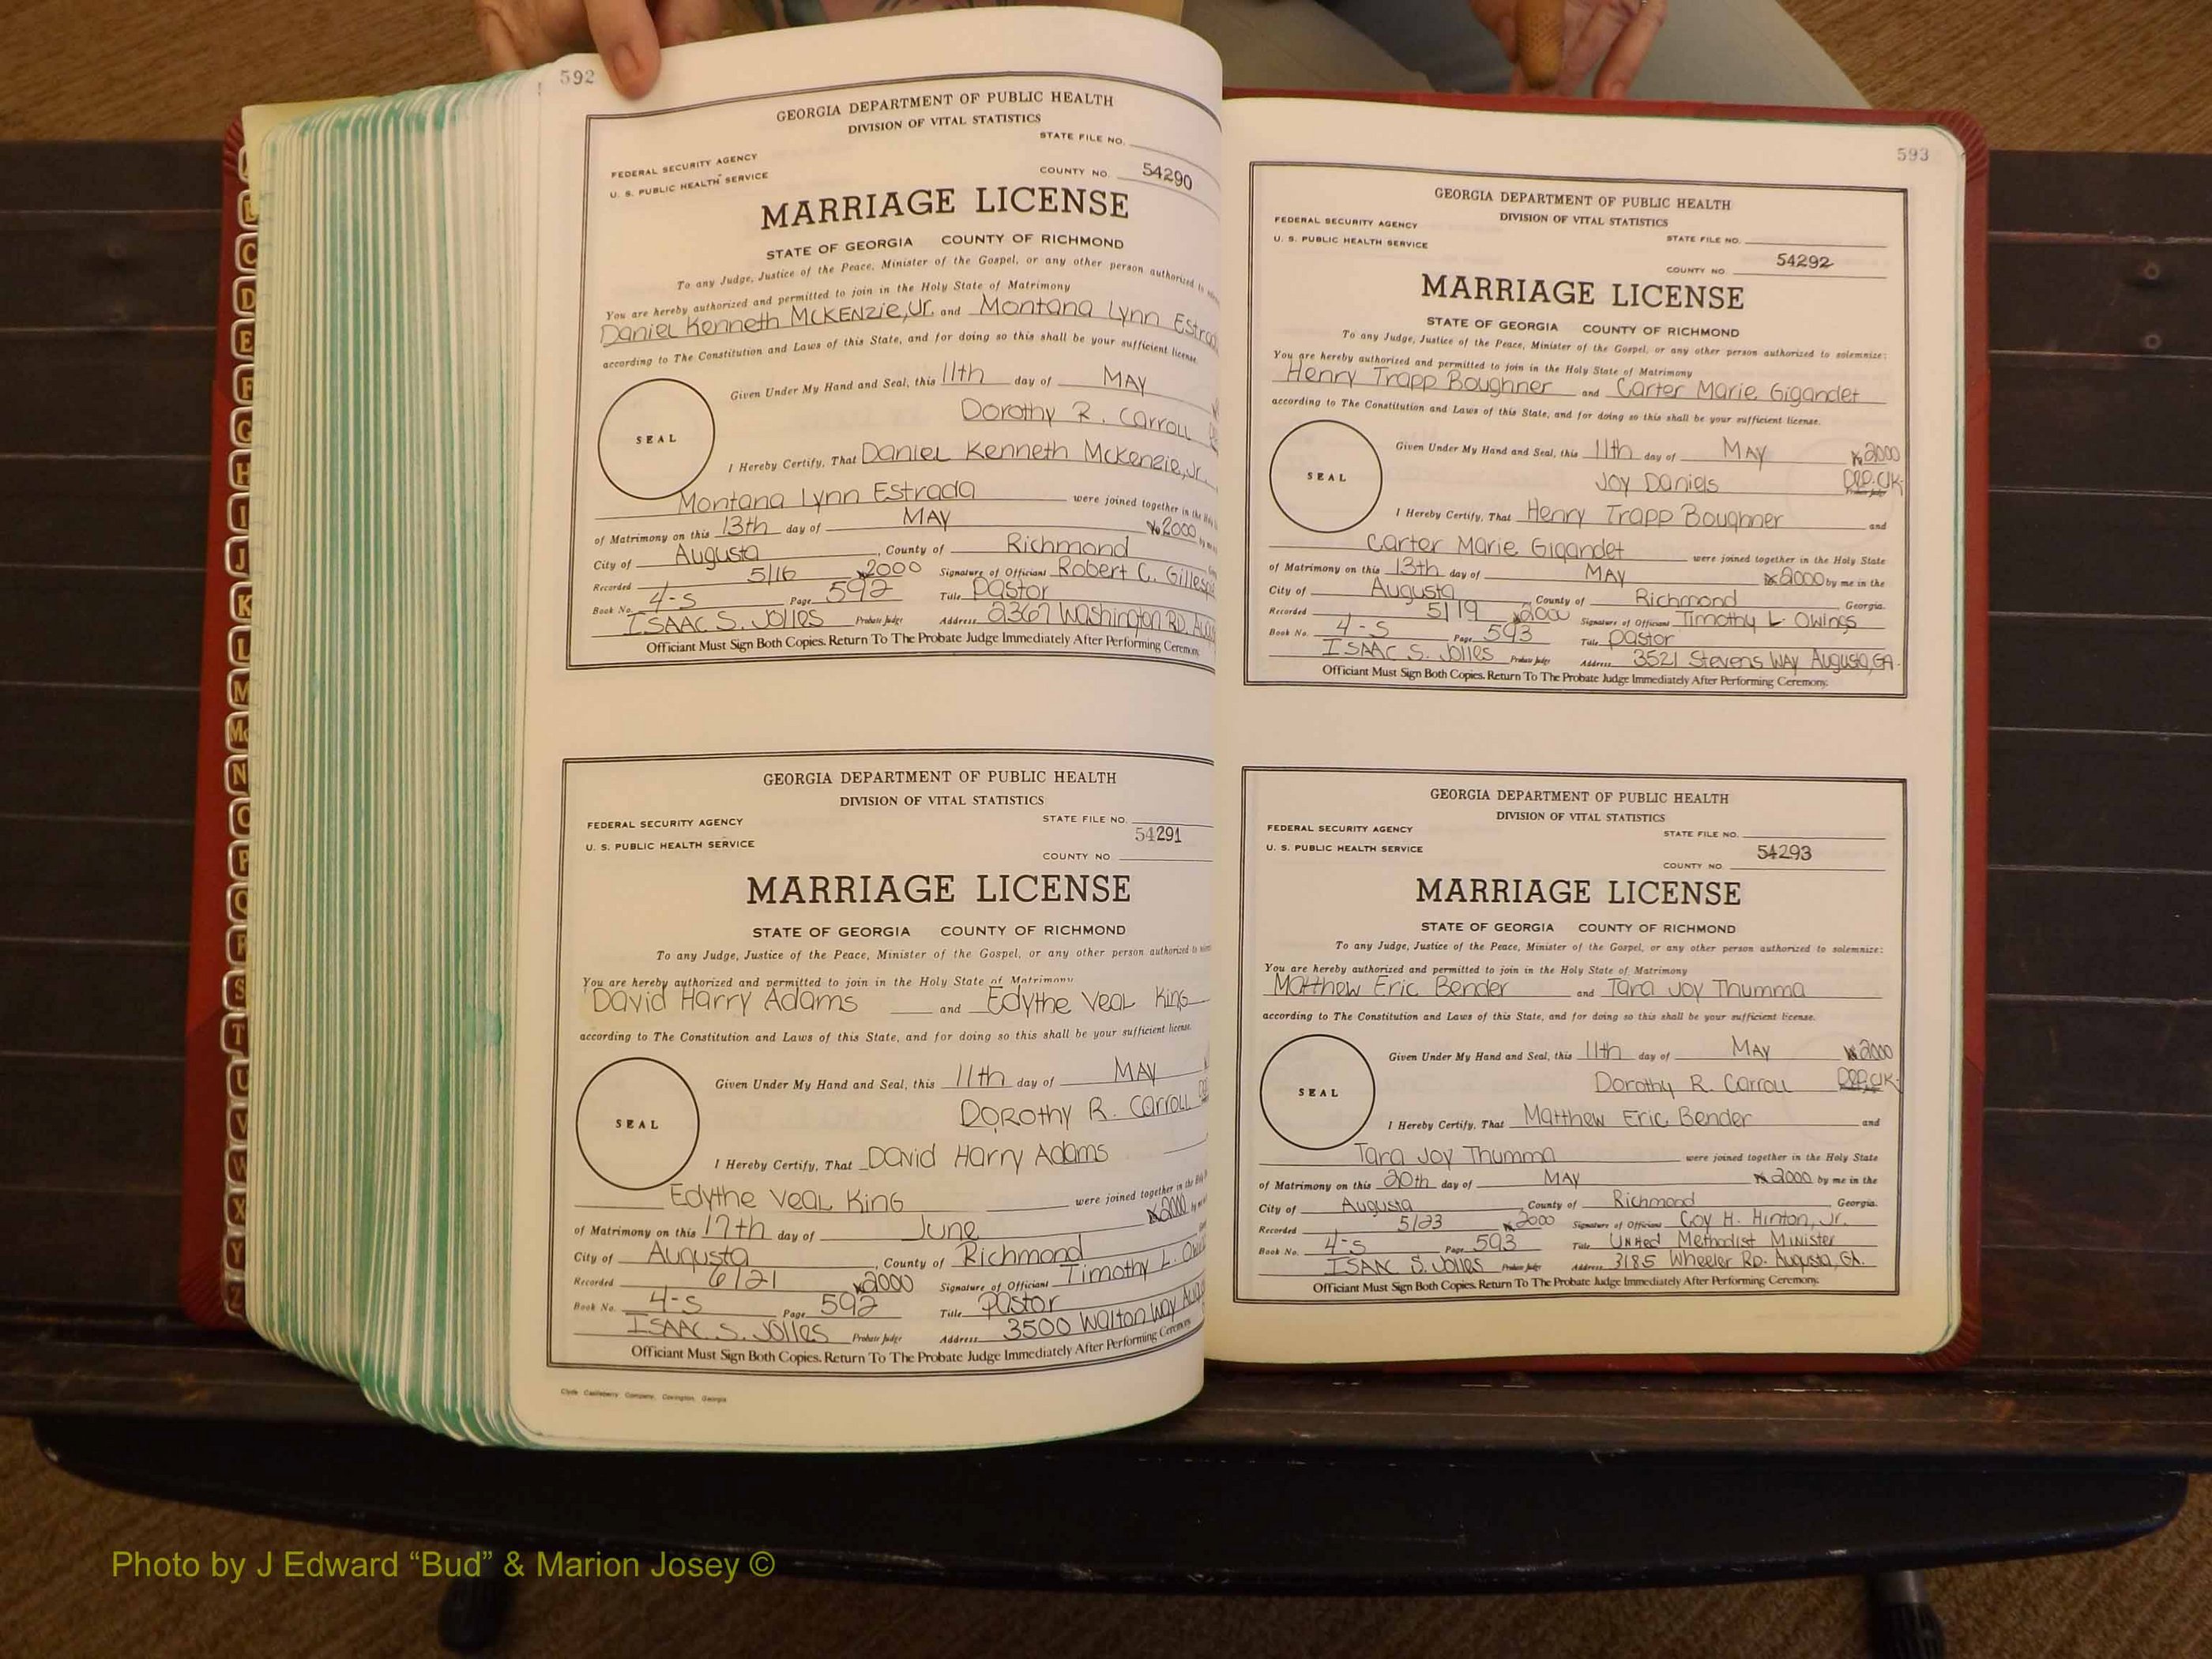 592
GEORGIA DEPARTMENT OF PUBLIC HEALTH
DIVISION OF VITAL STATISTICS
STATE FILE NO.
FEDERAL SECURITY AGENCY
U. S. PUBLIC HEALTH SERVICE
COUNTY NO. 54290
MARRIAGE LICENSE
STATE OF GEORGIA COUNTY OF RICHMOND
To any Judge, Justice of the Peace, Minister of the Gospel, or any other person authorized to
You are hereby authorized and permitted to join in the Holy State of Matrimony
Daniel Kenneth McKenzie, Jr. and Montana Lynn Estrad
according to The Constitution and Laws of this State, and for doing so this shall be your sufficient license.
SEAL
Given Under My Hand and Seal, this 11th day of May
Dorothy R. Carroll
I Hereby Certify, That Daniel Kenneth McKenzie, Jr.
Montana Lynn Estrada were joined together in the
of Matrimony on this 13th day of May 2000
City of Augusta, County of Richmond
Recorded 5/16 2000 Signature of Officiant Robert C. Gillesp
Book No. 4-S Page 592 Title Pastor
Isaac S. Jolles Probate Judge Address 2367 Washington Rd.
Officiant Must Sign Both Copies. Return To The Probate Judge Immediately After Performing Ceremony.
GEORGIA DEPARTMENT OF PUBLIC HEALTH
DIVISION OF VITAL STATISTICS
STATE FILE NO.
FEDERAL SECURITY AGENCY
54291
U. S. PUBLIC HEALTH SERVICE
COUNTY NO
MARRIAGE LICENSE
STATE OF GEORGIA COUNTY OF RICHMOND
To any Judge, Justice of the Peace, Minister of the Gospel, or any other person authorized to
You are hereby authorized and permitted to join in the Holy State of Matrimony
David Harry Adams and Edythe Veal King
according to The Constitution and Laws of this State, and for doing so this shall be your sufficient license.
SEAL
Given Under My Hand and Seal, this 11th day of May
Dorothy R. Carroll
I Hereby Certify, That David Harry Adams
Edythe Veal King were joined together in the
of Matrimony on this 17th day of June 2000
City of Augusta, County of Richmond
Recorded 6/21 2000 Signature of Officiant Timothy L.
Book No. 4-S Page 592 Title Pastor
Isaac S. Jolles Probate Judge Address 3500 Walton Way
Officiant Must Sign Both Copies. Return To The Probate Judge Immediately After Performing Ceremony.
Clyde Castleberry Company, Covington, Georgia
593
GEORGIA DEPARTMENT OF PUBLIC HEALTH
DIVISION OF VITAL STATISTICS
FEDERAL SECURITY AGENCY
U. S. PUBLIC HEALTH SERVICE
STATE FILE NO.
COUNTY NO 54292
MARRIAGE LICENSE
STATE OF GEORGIA COUNTY OF RICHMOND
To any Judge, Justice of the Peace, Minister of the Gospel, or any other person authorized to solemnize:
You are hereby authorized and permitted to join in the Holy State of Matrimony
Henry Trapp Boughner and Carter Marie Gigandet
according to The Constitution and Laws of this State, and for doing so this shall be your sufficient license.
SEAL
Given Under My Hand and Seal, this 11th day of May 2000
Joy Daniels Dep. Clk.
I Hereby Certify, That Henry Trapp Boughner and
Carter Marie Gigandet were joined together in the Holy State
of Matrimony on this 13th day of May 2000 by me in the
City of Augusta County of Richmond Georgia.
Recorded 5/19 2000 Signature of Officiant Timothy L. Owings
Book No. 4-S Page 593 Title Pastor
Isaac S. Jolles Probate Judge Address 3521 Stevens Way Augusta, GA.
Officiant Must Sign Both Copies. Return To The Probate Judge Immediately After Performing Ceremony.
GEORGIA DEPARTMENT OF PUBLIC HEALTH
DIVISION OF VITAL STATISTICS
FEDERAL SECURITY AGENCY
U. S. PUBLIC HEALTH SERVICE
STATE FILE NO.
54293
COUNTY NO
MARRIAGE LICENSE
STATE OF GEORGIA COUNTY OF RICHMOND
To any Judge, Justice of the Peace, Minister of the Gospel, or any other person authorized to solemnize:
You are hereby authorized and permitted to join in the Holy State of Matrimony
Matthew Eric Bender and Tara Joy Thumma
according to The Constitution and Laws of this State, and for doing so this shall be your sufficient license.
SEAL
Given Under My Hand and Seal, this 11th day of May 2000
Dorothy R. Carroll Dep. Clk.
I Hereby Certify, That Matthew Eric Bender and
Tara Joy Thumma were joined together in the Holy State
of Matrimony on this 20th day of May 2000 by me in the
City of Augusta County of Richmond Georgia.
Recorded 5/23 2000 Signature of Officiant Coy H. Hinton, Jr.
Book No. 4-S Page 593 Title United Methodist Minister
Isaac S. Jolles Probate Judge Address 3185 Wheeler Rd. Augusta, GA.
Officiant Must Sign Both Copies. Return To The Probate Judge Immediately After Performing Ceremony.
C
D
E
F
G
H
I
J
K
L
M
Mc
N
O
P
Q
R
S
T
U
V
W
X
Y
Z
Photo by J Edward “Bud” & Marion Josey ©